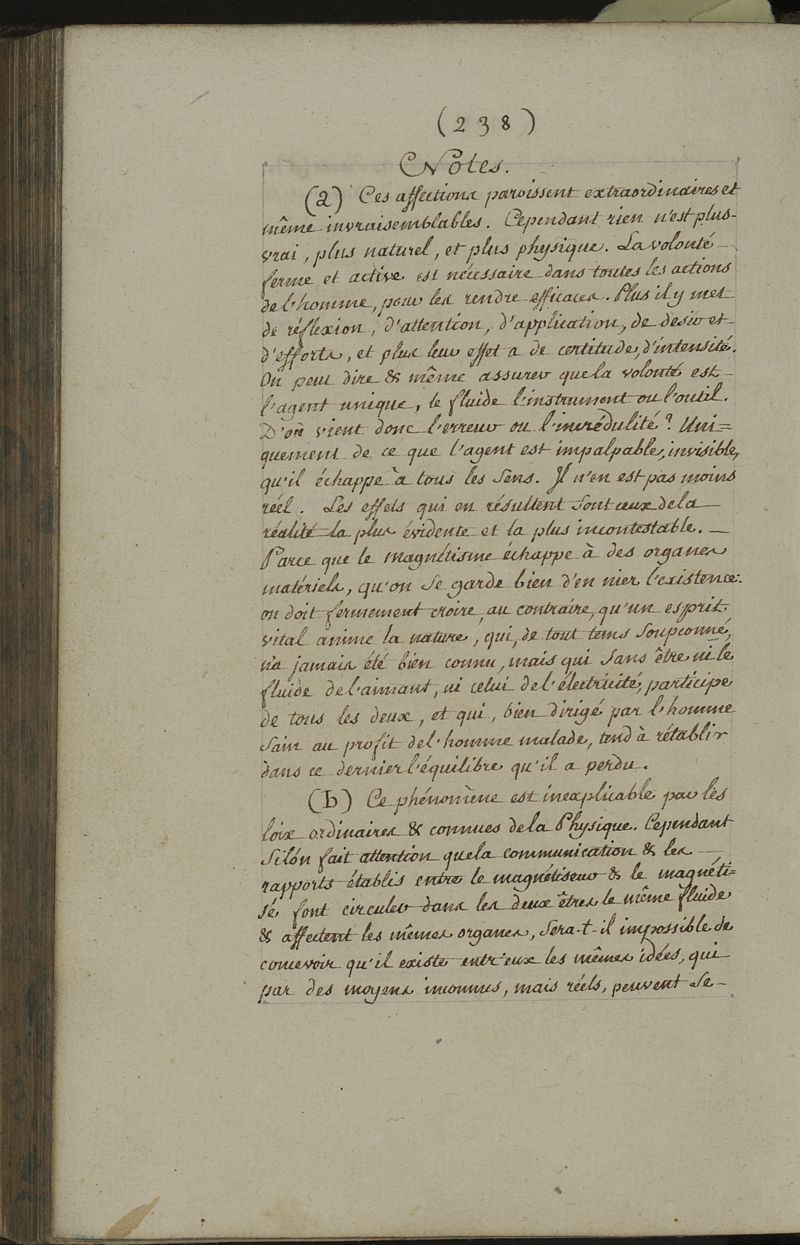 (238)
Notes.
(a) Ces affections paroissent extraordinaires et
même invraisemblables. Cependant rien n'est plus-
vrai, plus naturel, et plus physique. La volonté
ferme et active est nécessaire dans toutes les actions
de l'homme, pour les rendre efficaces. Plus il y met
de réflexion, d'attention, d'application, de desir et
d'efforts, et plus leur effet a de certitude, d'intensité.
On peut dire & même assurer que la volonté est
l'agent unique, le fluide l'instrument ou l'outil.
D'où vient donc l'erreur ou l'incrédulité? Uni=
quement de ce que l'agent est impalpable, invisible,
qu'il échappe à tous les sens. Il n'en est pas moins
réel. Les effets qui en résultent sont ceux de la
réalité la plus évidente et la plus incontestable. —
Parce que le magnétisme échappe à des organes
matériels, qu'on se garde bien d'en nier l'existence.
on doit fermement croire, au contraire, qu'un esprit
vital anime la nature, qui, de tout tems soupçonné,
n'a jamais été bien connu, mais qui sans être ni le
fluide de l'aimant, ni celui de l'électricité, participe
de tous les deux, et qui, bien dirigé par l'homme
sain au profit de l'homme malade, tend à rétablir
dans ce dernier l'équilibre qu'il a perdu.
(b) Ce phénomène est inexplicable par les
loix ordinaires & connues de la Physique. Cependant
si l'on fait attention que la communication & les —
rapports établis entre le magnétiseur & le magnéti-
sé font circuler dans les deux êtres le même fluide
& affectent les mêmes organes, sera-t-il impossible de
concevoir qu'il existe entr'eux les mêmes idées, qui
par des moyens inconnus, mais réels, peuvent se-